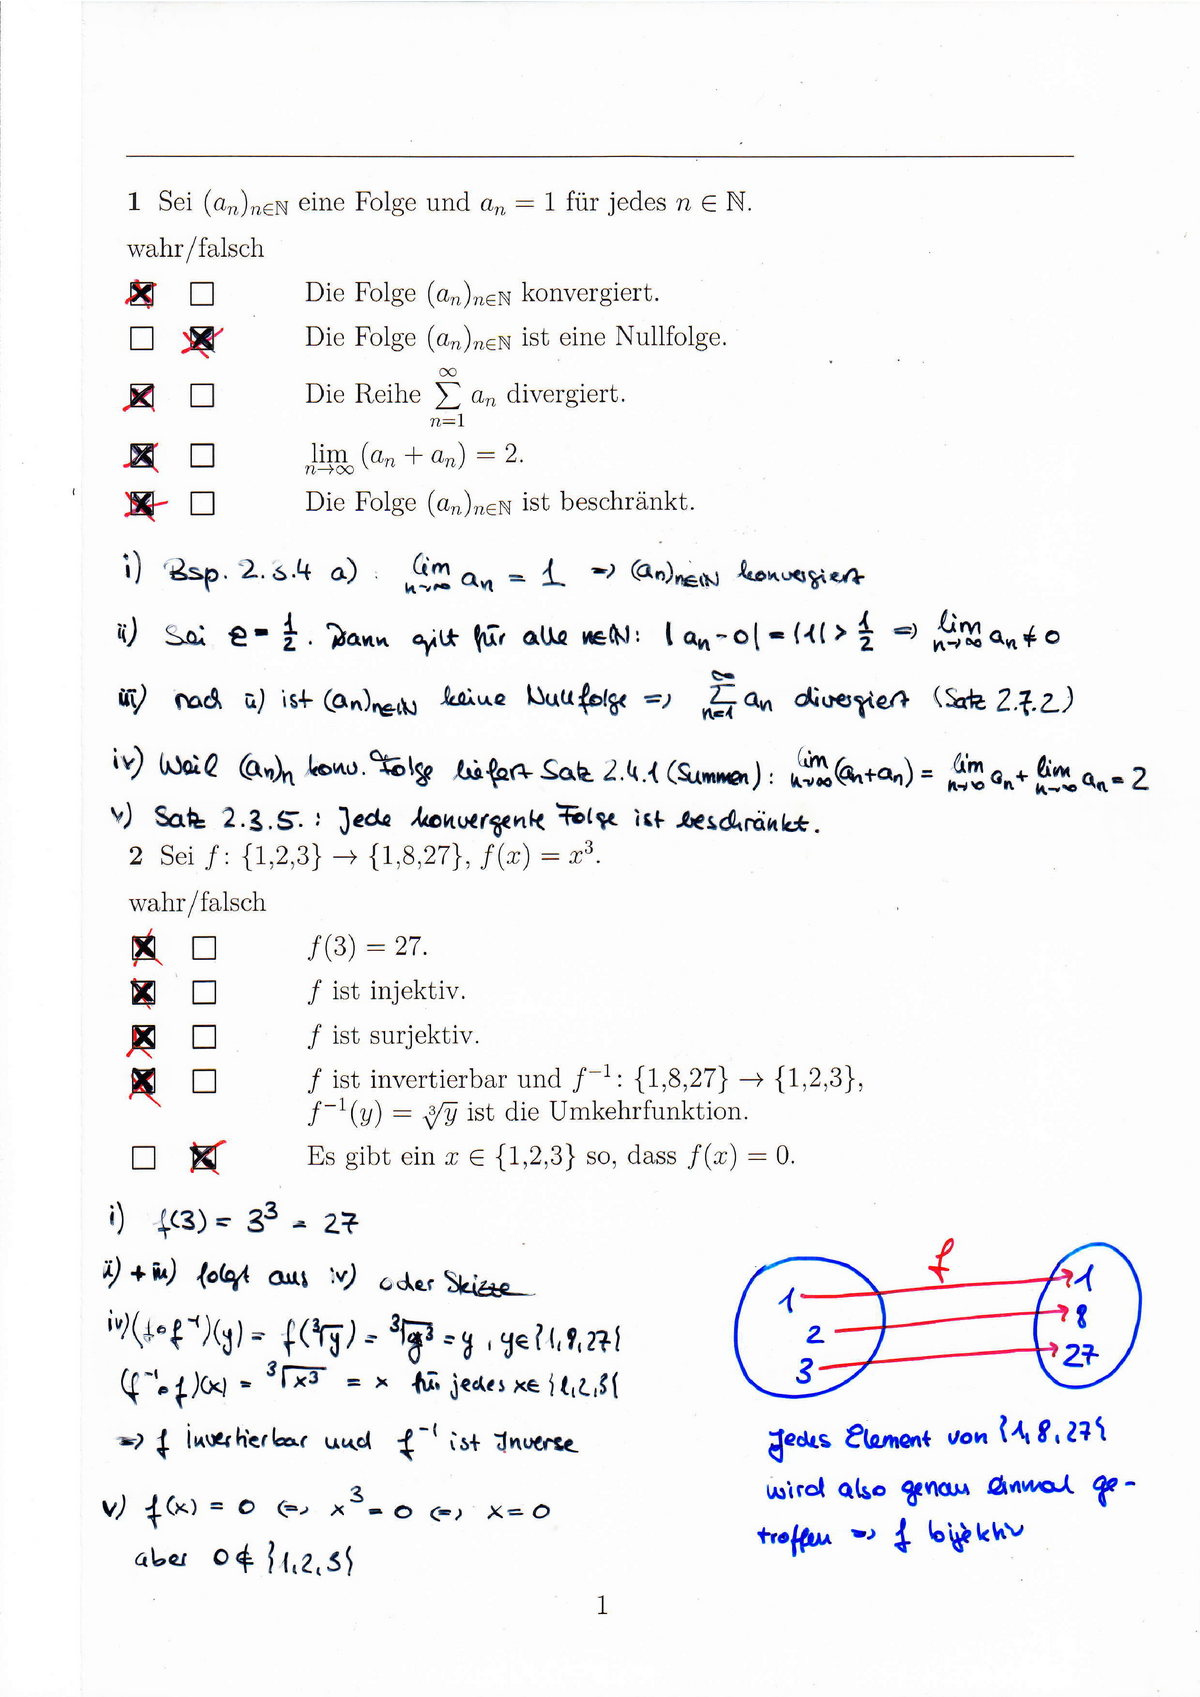 1 Sei (aₙ)ₙ∈ℕ eine Folge und aₙ = 1 für jedes n ∈ ℕ.
wahr/falsch
☒ ☐ Die Folge (aₙ)ₙ∈ℕ konvergiert.
☐ ☒ Die Folge (aₙ)ₙ∈ℕ ist eine Nullfolge.
☒ ☐ Die Reihe ∑_{n=1}^{∞} aₙ divergiert.
☒ ☐ lim_{n→∞} (aₙ + aₙ) = 2.
☒ ☐ Die Folge (aₙ)ₙ∈ℕ ist beschränkt.
i) Bsp. 2.3.4 a) : lim_{n→∞} aₙ = 1 ⇒ (aₙ)ₙ∈ℕ konvergiert
ii) Sei ε = 1/2. Dann gilt für alle n∈ℕ: |aₙ - 0| = |1| > 1/2 ⇒ lim_{n→∞} aₙ ≠ 0
iii) nach ii) ist (aₙ)ₙ∈ℕ keine Nullfolge ⇒ ∑_{n=1}^{∞} aₙ divergiert (Satz 2.7.2)
iv) Weil (aₙ)ₙ konv. Folge liefert Satz 2.4.1 (Summen): lim_{n→∞} (aₙ+aₙ) = lim_{n→∞} aₙ + lim_{n→∞} aₙ = 2
v) Satz 2.3.5. : Jede konvergente Folge ist beschränkt.
2 Sei f: {1,2,3} → {1,8,27}, f(x) = x³.
wahr/falsch
☒ ☐ f(3) = 27.
☒ ☐ f ist injektiv.
☒ ☐ f ist surjektiv.
☒ ☐ f ist invertierbar und f⁻¹: {1,8,27} → {1,2,3},
f⁻¹(y) = ∛y ist die Umkehrfunktion.
☐ ☒ Es gibt ein x ∈ {1,2,3} so, dass f(x) = 0.
i) f(3) = 3³ = 27
ii) + iii) folgt aus iv) oder Skizze
iv) (f∘f⁻¹)(y) = f(∛y) = ∛y³ = y, y∈{1,8,27}
(f⁻¹∘f)(x) = ∛x³ = x für jedes x∈{1,2,3}
⇒ f invertierbar und f⁻¹ ist Inverse
v) f(x) = 0 ⇔ x³ = 0 ⇔ x = 0
aber 0 ∉ {1,2,3}
f
1 1
2 8
3 27
Jedes Element von {1,8,27}
wird also genau einmal ge-
troffen ⇒ f bijektiv
1